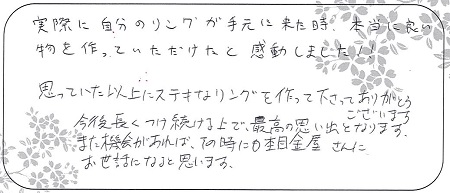 実際に自分のリングが手元に来た時、本当に良い
物を作っていただけたと感動しました!!
思っていた以上にステキなリングを作って下さってありがとう
ございます
今後長くつけ続ける上で、最高の思い出となります。
また機会があれば、その時にも杢目金屋さんに
お世話になると思います。